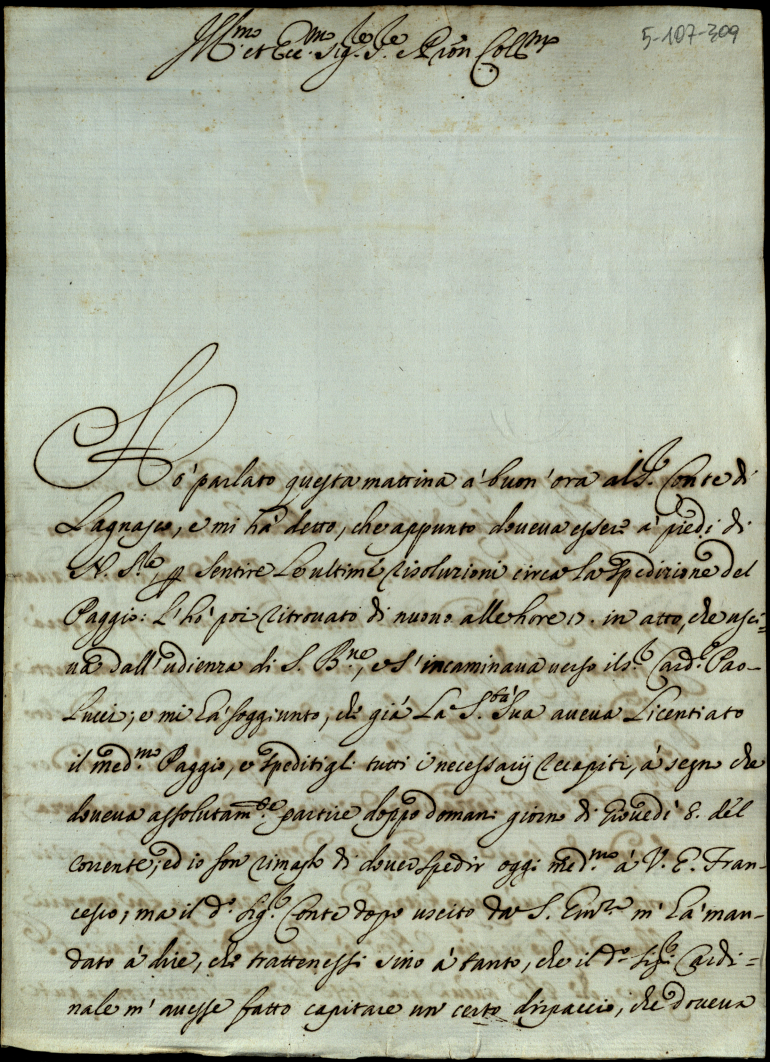 5-107-309
Ill.mo et Ecc.mo Sig.re S.re e Pron Coll.mo
Hò parlato questa mattina à buon'ora al S.r Conte di
Lagnasco, e mi hà detto, che appunto doveva essere a' piedi di
N. S.re, per sentire le ultime risoluzioni circa la spedizione del
Paggio: l'hò poi ritrovato di nuovo alle hore 17. in atto, che usci=
va dall'udienza di S. B.ne, e s'incaminava verso il S.r Card. Pao-
lucci; e mi hà soggiunto, che già la S.tà Sua aveva licentiato
il med.mo Paggio, e speditigli tutti i necessarij recapiti, à segno che
doveva assolutam.te partire doppo domani giorno di Giovedì 8. del
corrente; ed io son rimasto di dover spedir oggi med.mo à V. E. Fran-
cesco; ma il d.o Sig.r Conte dopo uscito da S. Em.za m'hà man-
dato à dire, che trattenessi sino à tanto, che il d.o Sig.r Cardi=
nale m'avesse fatto capitare un certo dispaccio, che doveva